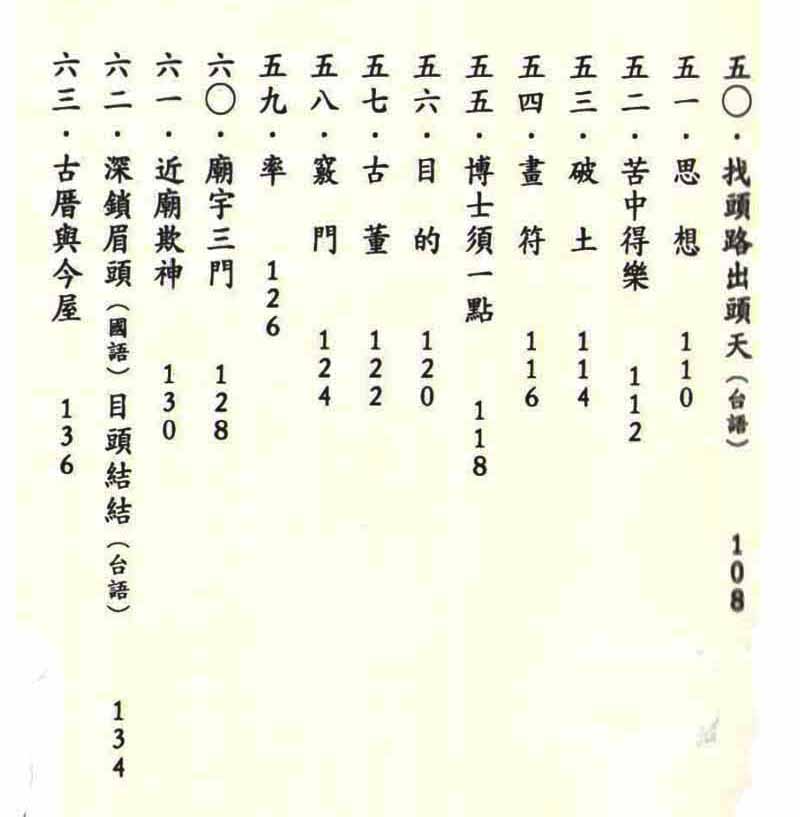 五〇・找頭路出頭天（台語） 108
五一・思想 110
五二・苦中得樂 112
五三・破土 114
五四・畫符 116
五五・博士須一點 118
五六・目的 120
五七・古董 122
五八・竅門 124
五九・率 126
六〇・廟宇三門 128
六一・近廟欺神 130
六二・深鎖眉頭（國語）目頭結結（台語） 134
六三・古厝與今屋 136